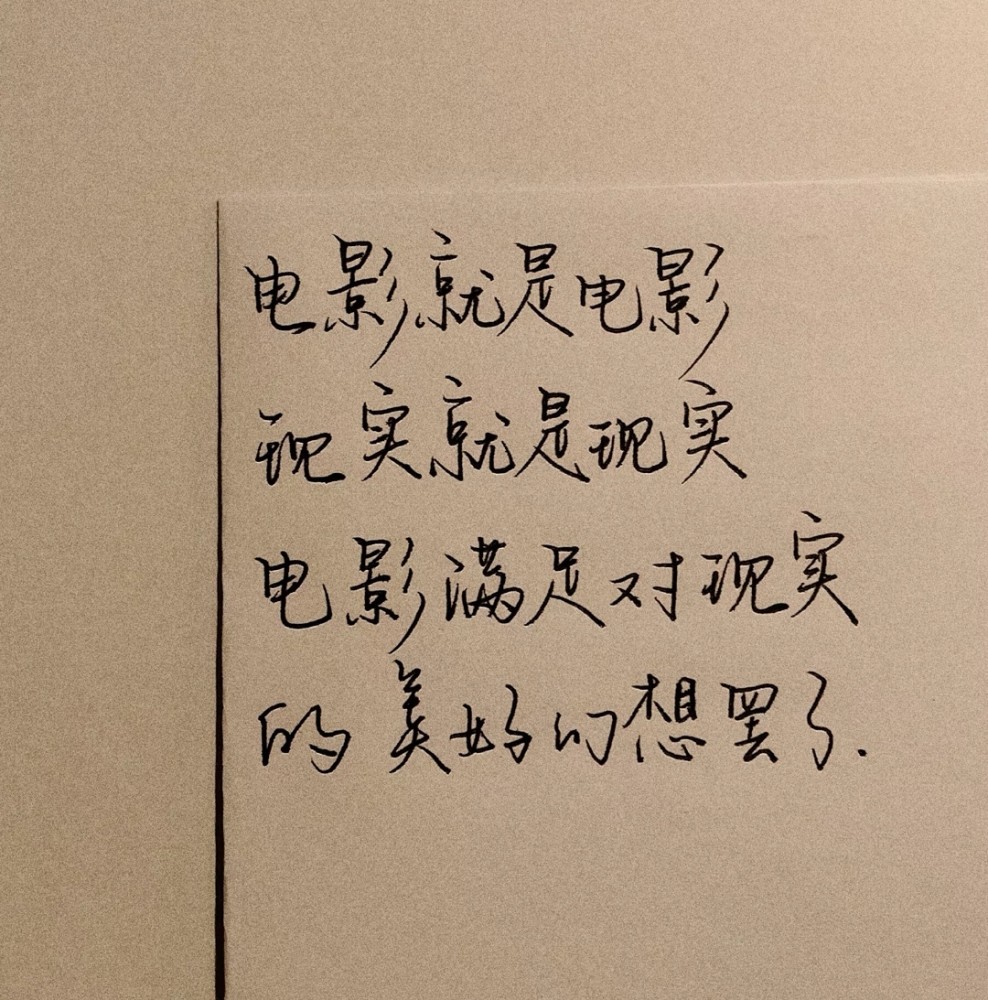 电影就是电影
现实就是现实
电影满足对现实
的美好幻想罢了.